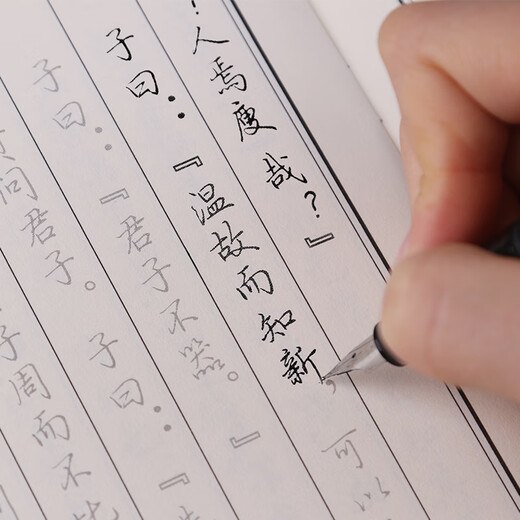 ！人焉廋哉？』
子曰：『温故而知新，可以
子曰：『君子不器。』
问君子。子曰：『
周而不比